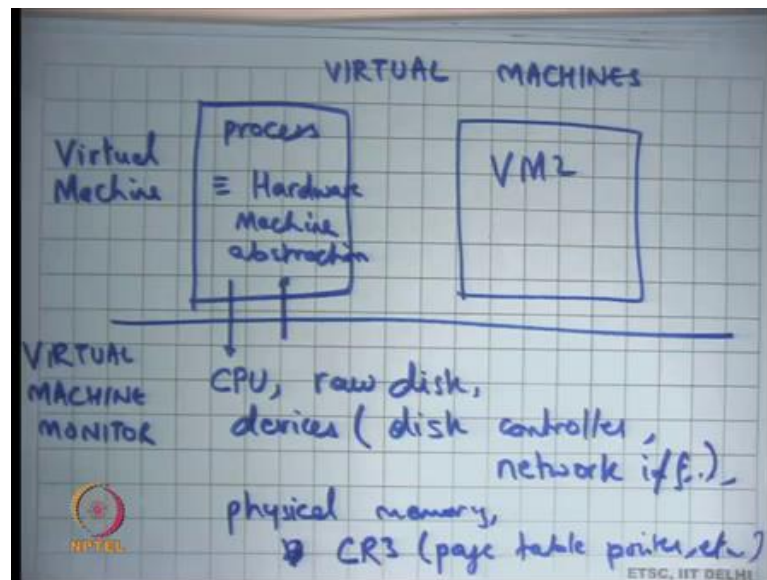 VIRTUAL MACHINES
process
Virtual
Machine
≡ Hardware
Machine
abstraction
VM2
VIRTUAL
MACHINE
MONITOR
CPU, raw disk,
devices ( disk controller,
network i/f.)
physical memory,
CR3 (page table pointer, etc)
NPTEL
ETSC, IIT DELHI